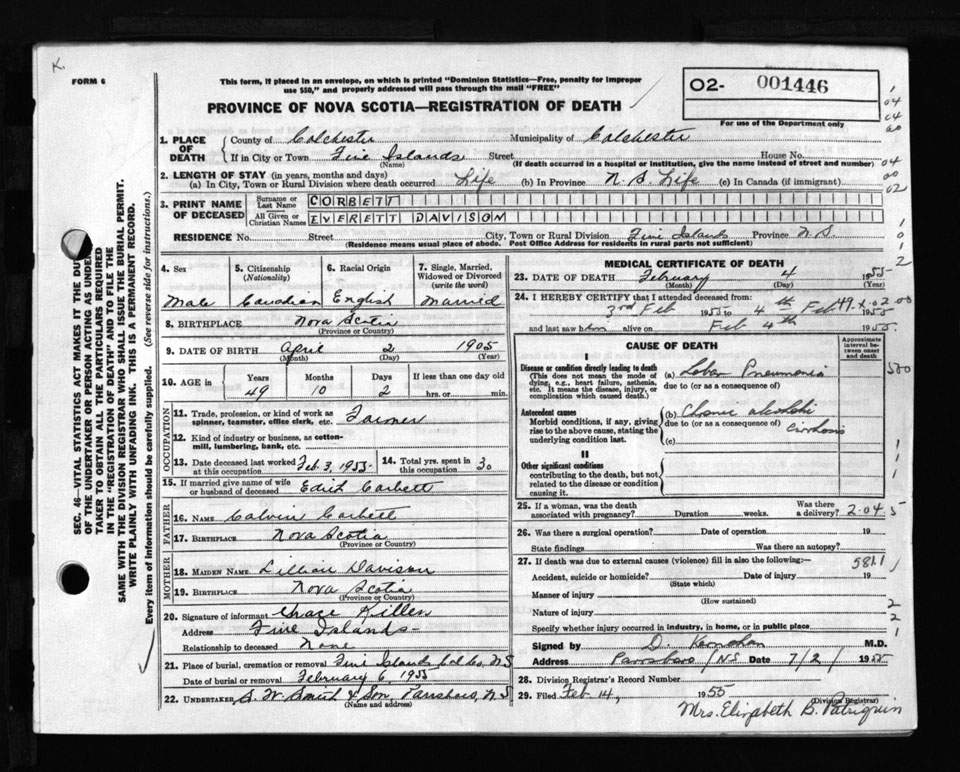 K.
FORM 6
This form, if placed in an envelope, on which is printed "Dominion Statistics—Free, penalty for improper
use $50," and properly addressed will pass through the mail "FREE"
PROVINCE OF NOVA SCOTIA—REGISTRATION OF DEATH
O2- 001446
For use of the Department only
SEC. 46—VITAL STATISTICS ACT MAKES IT THE DUTY
OF THE UNDERTAKER OR PERSON ACTING AS UNDER-
TAKER TO OBTAIN ALL THE PARTICULARS REQUIRED
IN THE "REGISTRATION OF DEATH" AND TO FILE THE
SAME WITH THE DIVISION REGISTRAR WHO SHALL ISSUE THE BURIAL PERMIT.
WRITE PLAINLY WITH UNFADING INK. THIS IS A PERMANENT RECORD.
Every item of information should be carefully supplied. (See reverse side for instructions.)
1. PLACE OF DEATH County of Colchester Municipality of Colchester
If in City or Town Five Islands Street House No.
(Name) (If death occurred in a hospital or institution, give the name instead of street and number)
2. LENGTH OF STAY (in years, months and days)
(a) In City, Town or Rural Division where death occurred Life (b) In Province N. S. Life (c) In Canada (if immigrant)
3. PRINT NAME OF DECEASED Surname or Last Name CORBETT
All Given or Christian Names EVERETT DAVISON
RESIDENCE No. Street City, Town or Rural Division Five Islands Province N.S.
(Residence means usual place of abode. Post Office Address for residents in rural parts not sufficient)
4. Sex 5. Citizenship (Nationality) 6. Racial Origin 7. Single, Married, Widowed or Divorced (write the word)
Male Canadian English Married
8. BIRTHPLACE Nova Scotia
(Province or Country)
9. DATE OF BIRTH April 2 1905
(Month) (Day) (Year)
10. AGE in Years Months Days If less than one day old
49 10 2 hrs. or min.
OCCUPATION
11. Trade, profession, or kind of work as spinner, teamster, office clerk, etc. Farmer
12. Kind of industry or business, as cotton-mill, lumbering, bank, etc.
13. Date deceased last worked at this occupation Feb. 3, 1955 14. Total yrs. spent in this occupation 30
15. If married give name of wife or husband of deceased Edith Corbett
FATHER
16. NAME Calvin Corbett
17. BIRTHPLACE Nova Scotia
(Province or Country)
MOTHER
18. MAIDEN NAME Lillian Davison
19. BIRTHPLACE Nova Scotia
(Province or Country)
20. Signature of informant Grace Killen
Address Five Islands
Relationship to deceased None
21. Place of burial, cremation or removal Five Islands, Col. Co. N.S
Date of burial or removal February 6, 1955
22. UNDERTAKER, S. W. Smith & Son, Parrsboro, N.S
(Name and address)
MEDICAL CERTIFICATE OF DEATH
23. DATE OF DEATH February 4 1955
(Month) (Day) (Year)
24. I HEREBY CERTIFY that I attended deceased from:
3rd Feb 1955 to 4th Feb 1955
49.x.02.00
and last saw him alive on Feb 4th 1955.
CAUSE OF DEATH
Approximate interval between onset and death
I
Disease or condition directly leading to death
(This does not mean the mode of dying, e.g., heart failure, asthenia, etc. It means the disease, injury, or complication which caused death.)
(a) Lobar Pneumonia
due to (or as a consequence of)
Antecedent causes
Morbid conditions, if any, giving rise to the above cause, stating the underlying condition last.
(b) Chronic alcoholic
due to (or as a consequence of) Cirrhosis
(c)
II
Other significant conditions
contributing to the death, but not related to the disease or condition causing it.
25. If a woman, was the death associated with pregnancy? Duration weeks. Was there a delivery? 2-04 5
26. Was there a surgical operation? Date of operation 19
State findings Was there an autopsy?
27. If death was due to external causes (violence) fill in also the following:— 581.1
Accident, suicide or homicide? Date of injury 19
(State which)
Manner of injury
(How sustained)
Nature of injury
Specify whether injury occurred in industry, in home, or in public place
Signed by D. Kernohan M.D.
Address Parrsboro / NS Date 7/2/ 1955
28. Division Registrar's Record Number
29. Filed Feb 14, 1955
Mrs. Elizabeth B. Patriquin
(Division Registrar)